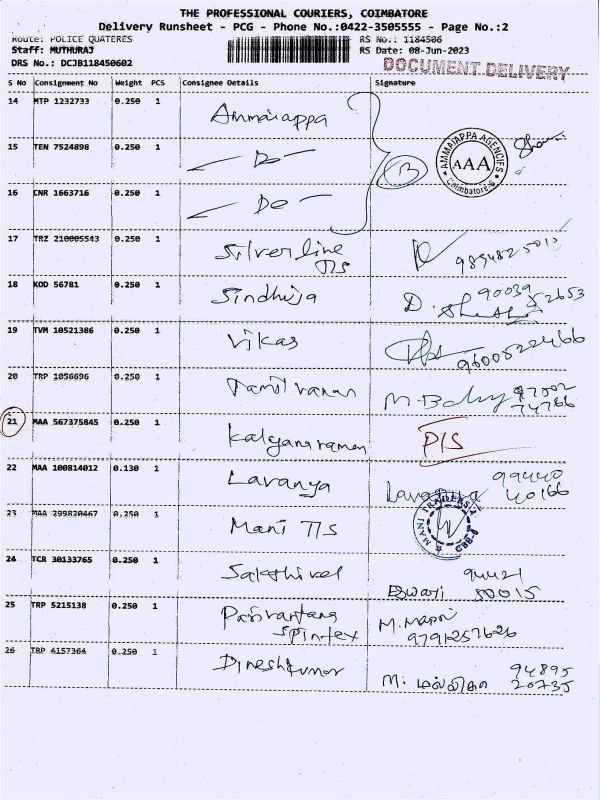 THE PROFESSIONAL COURIERS, COIMBATORE
Delivery Runsheet - PCG - Phone No.:0422-3505555 - Page No.:2
Route: POLICE QUATERES RS No.: 1184506
Staff: MUTHURAJ RS Date: 08-Jun-2023
DRS No.: DCJB118450602 DOCUMENT DELIVERY
S No Consignment No Weight PCS Consignee Details Signature
14 MTP 1232733 0.250 1 Ammaiappa
AMMAIAPPA AGENCIES AAA Coimbatore-6
15 TEN 7524898 0.250 1 Do
16 CNR 1663716 0.250 1 Do
17 TRZ 210005543 0.250 1 Silverline
T/S
18 KOD 56781 0.250 1 Sindhuja D. 90039
52653
19 TVM 10521386 0.250 1 Vikas 9600522466
20 TRP 1056696 0.250 1 Tamilvanan
74766
21 MAA 567375845 0.250 1 Kalyanaraman P/S
22 MAA 100814012 0.130 1 Lavanya Lavanya 99440
40166
23 MAA 299820467 0.250 1 Mani T/S MANI TRADERS CBE-6
24 TCR 30133765 0.250 1 Sakthivel Eswari 94421
50015
25 TRP 5215138 0.250 1 M. Mani
Spintex 9791257626
26 TRP 6157364 0.250 1 Dineshkumar M. மல்லிகா 94895
20735